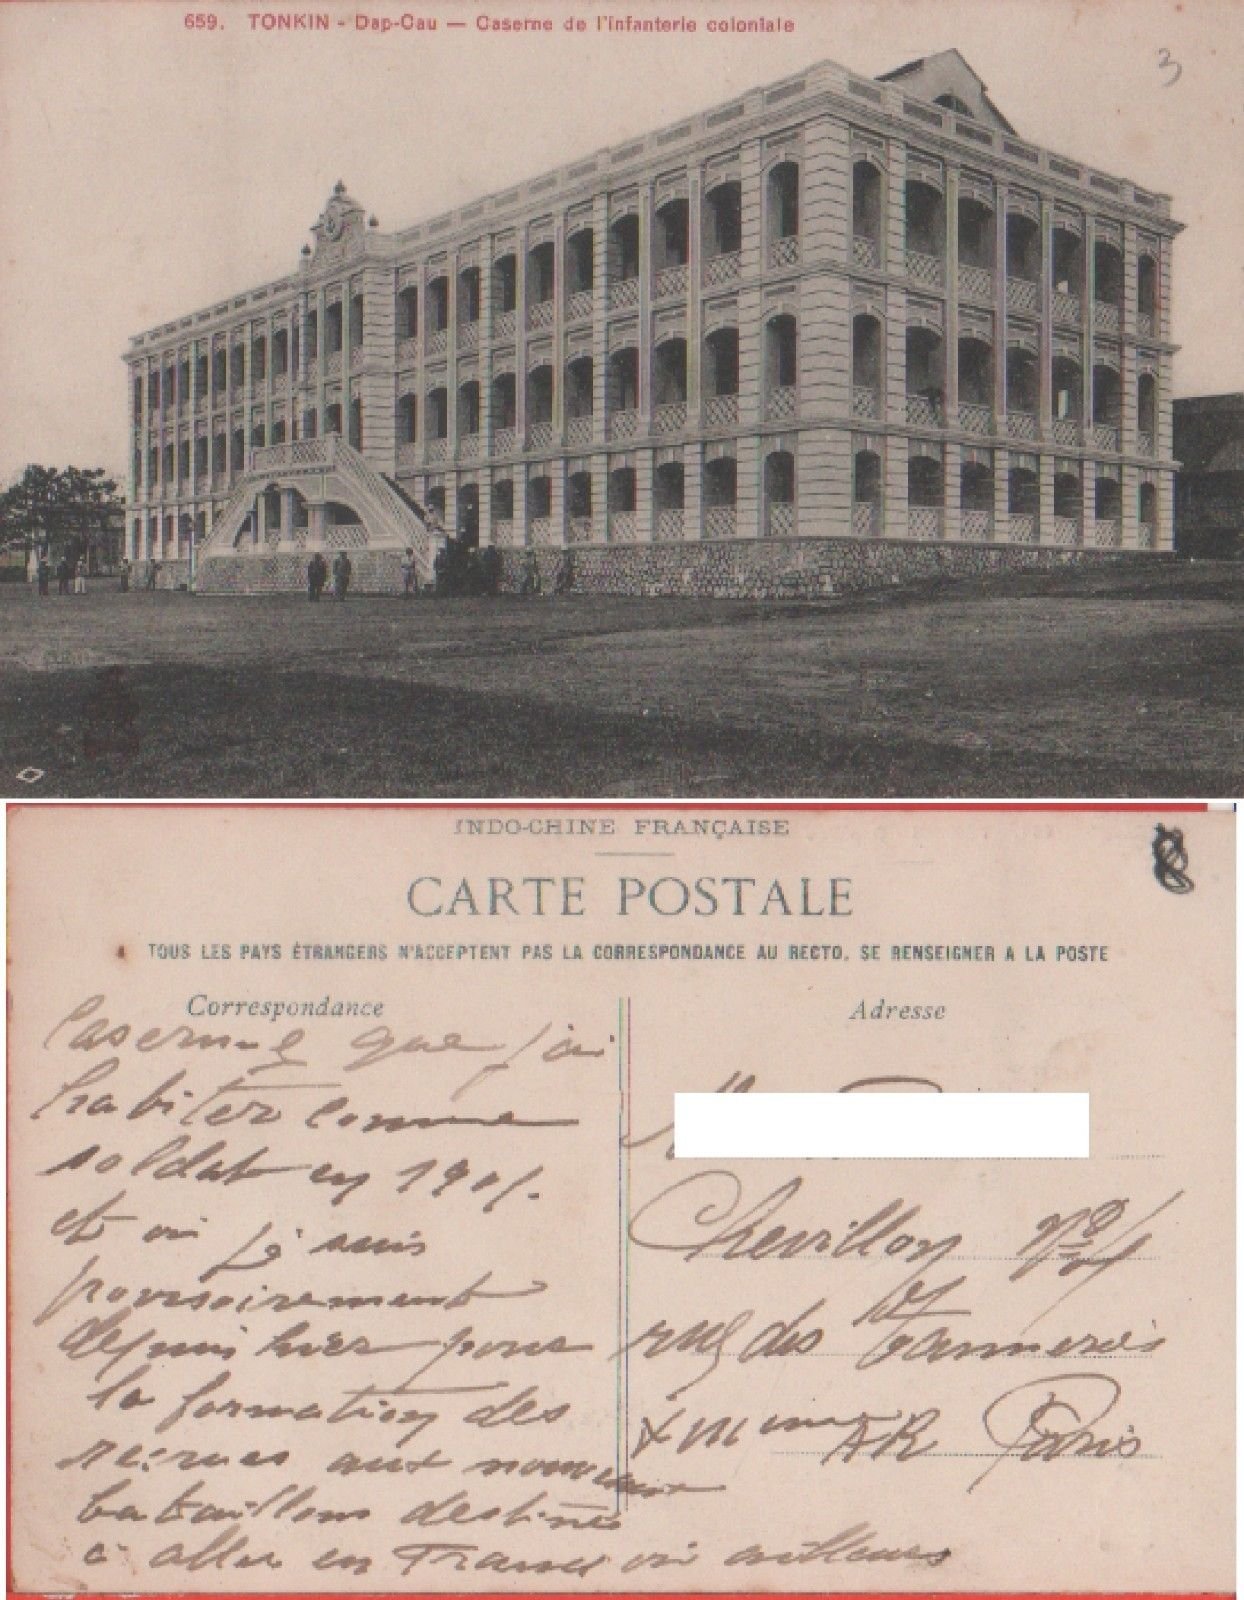 659. TONKIN - Dap-Cau — Caserne de l'infanterie coloniale
3
INDO-CHINE FRANÇAISE
CARTE POSTALE
TOUS LES PAYS ÉTRANGERS N'ACCEPTENT PAS LA CORRESPONDANCE AU RECTO. SE RENSEIGNER A LA POSTE
Correspondance
Caserne que j'ai
habiter comme
soldat en 190
et ou je suis
provisoirement
depuis hier pour
la formation des
recrues aux nouveaux
bataillons destinés
à aller en France ou ailleurs
Adresse
Chevillon
rue des Tanneries
AR Paris